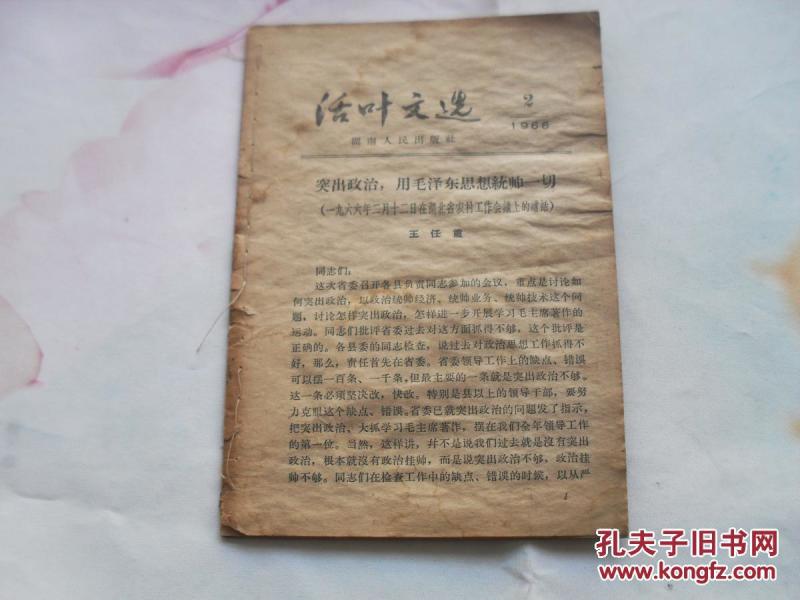 活叶文选
2
1966
湖南人民出版社
突出政治，用毛泽东思想統帅一切
（一九六六年二月十二日在湖北省农村工作会議上的讲話）
王任重
同志们：
这次省委召开各县负责同志参加的会议，重点是讨论如
何突出政治，以政治统帅经济、统帅业务、统帅技术这个问
题，讨论怎样突出政治，怎样进一步开展学习毛主席著作的
运动。同志们批评省委过去对这方面抓得不够，这个批评是
正确的。各县委的同志检查，说过去对政治思想工作抓得不
好，那么，责任首先在省委。省委领导工作上的缺点、错误
可以摆一百条、一千条，但最主要的一条就是突出政治不够。
这一条必须坚决改，快改。特别是县以上的领导干部，要努
力克服这个缺点、错误。省委已就突出政治的问题发了指示，
把突出政治、大抓学习毛主席著作，摆在我们全年领导工作
的第一位。当然，这样讲，幷不是说我们过去就是沒有突出
政治，根本就沒有政治挂帅，而是说突出政治不够，政治挂
帅不够。同志们在检查工作中的缺点、错误的时候，以从严
1
孔夫子旧书网
www.kongfz.com